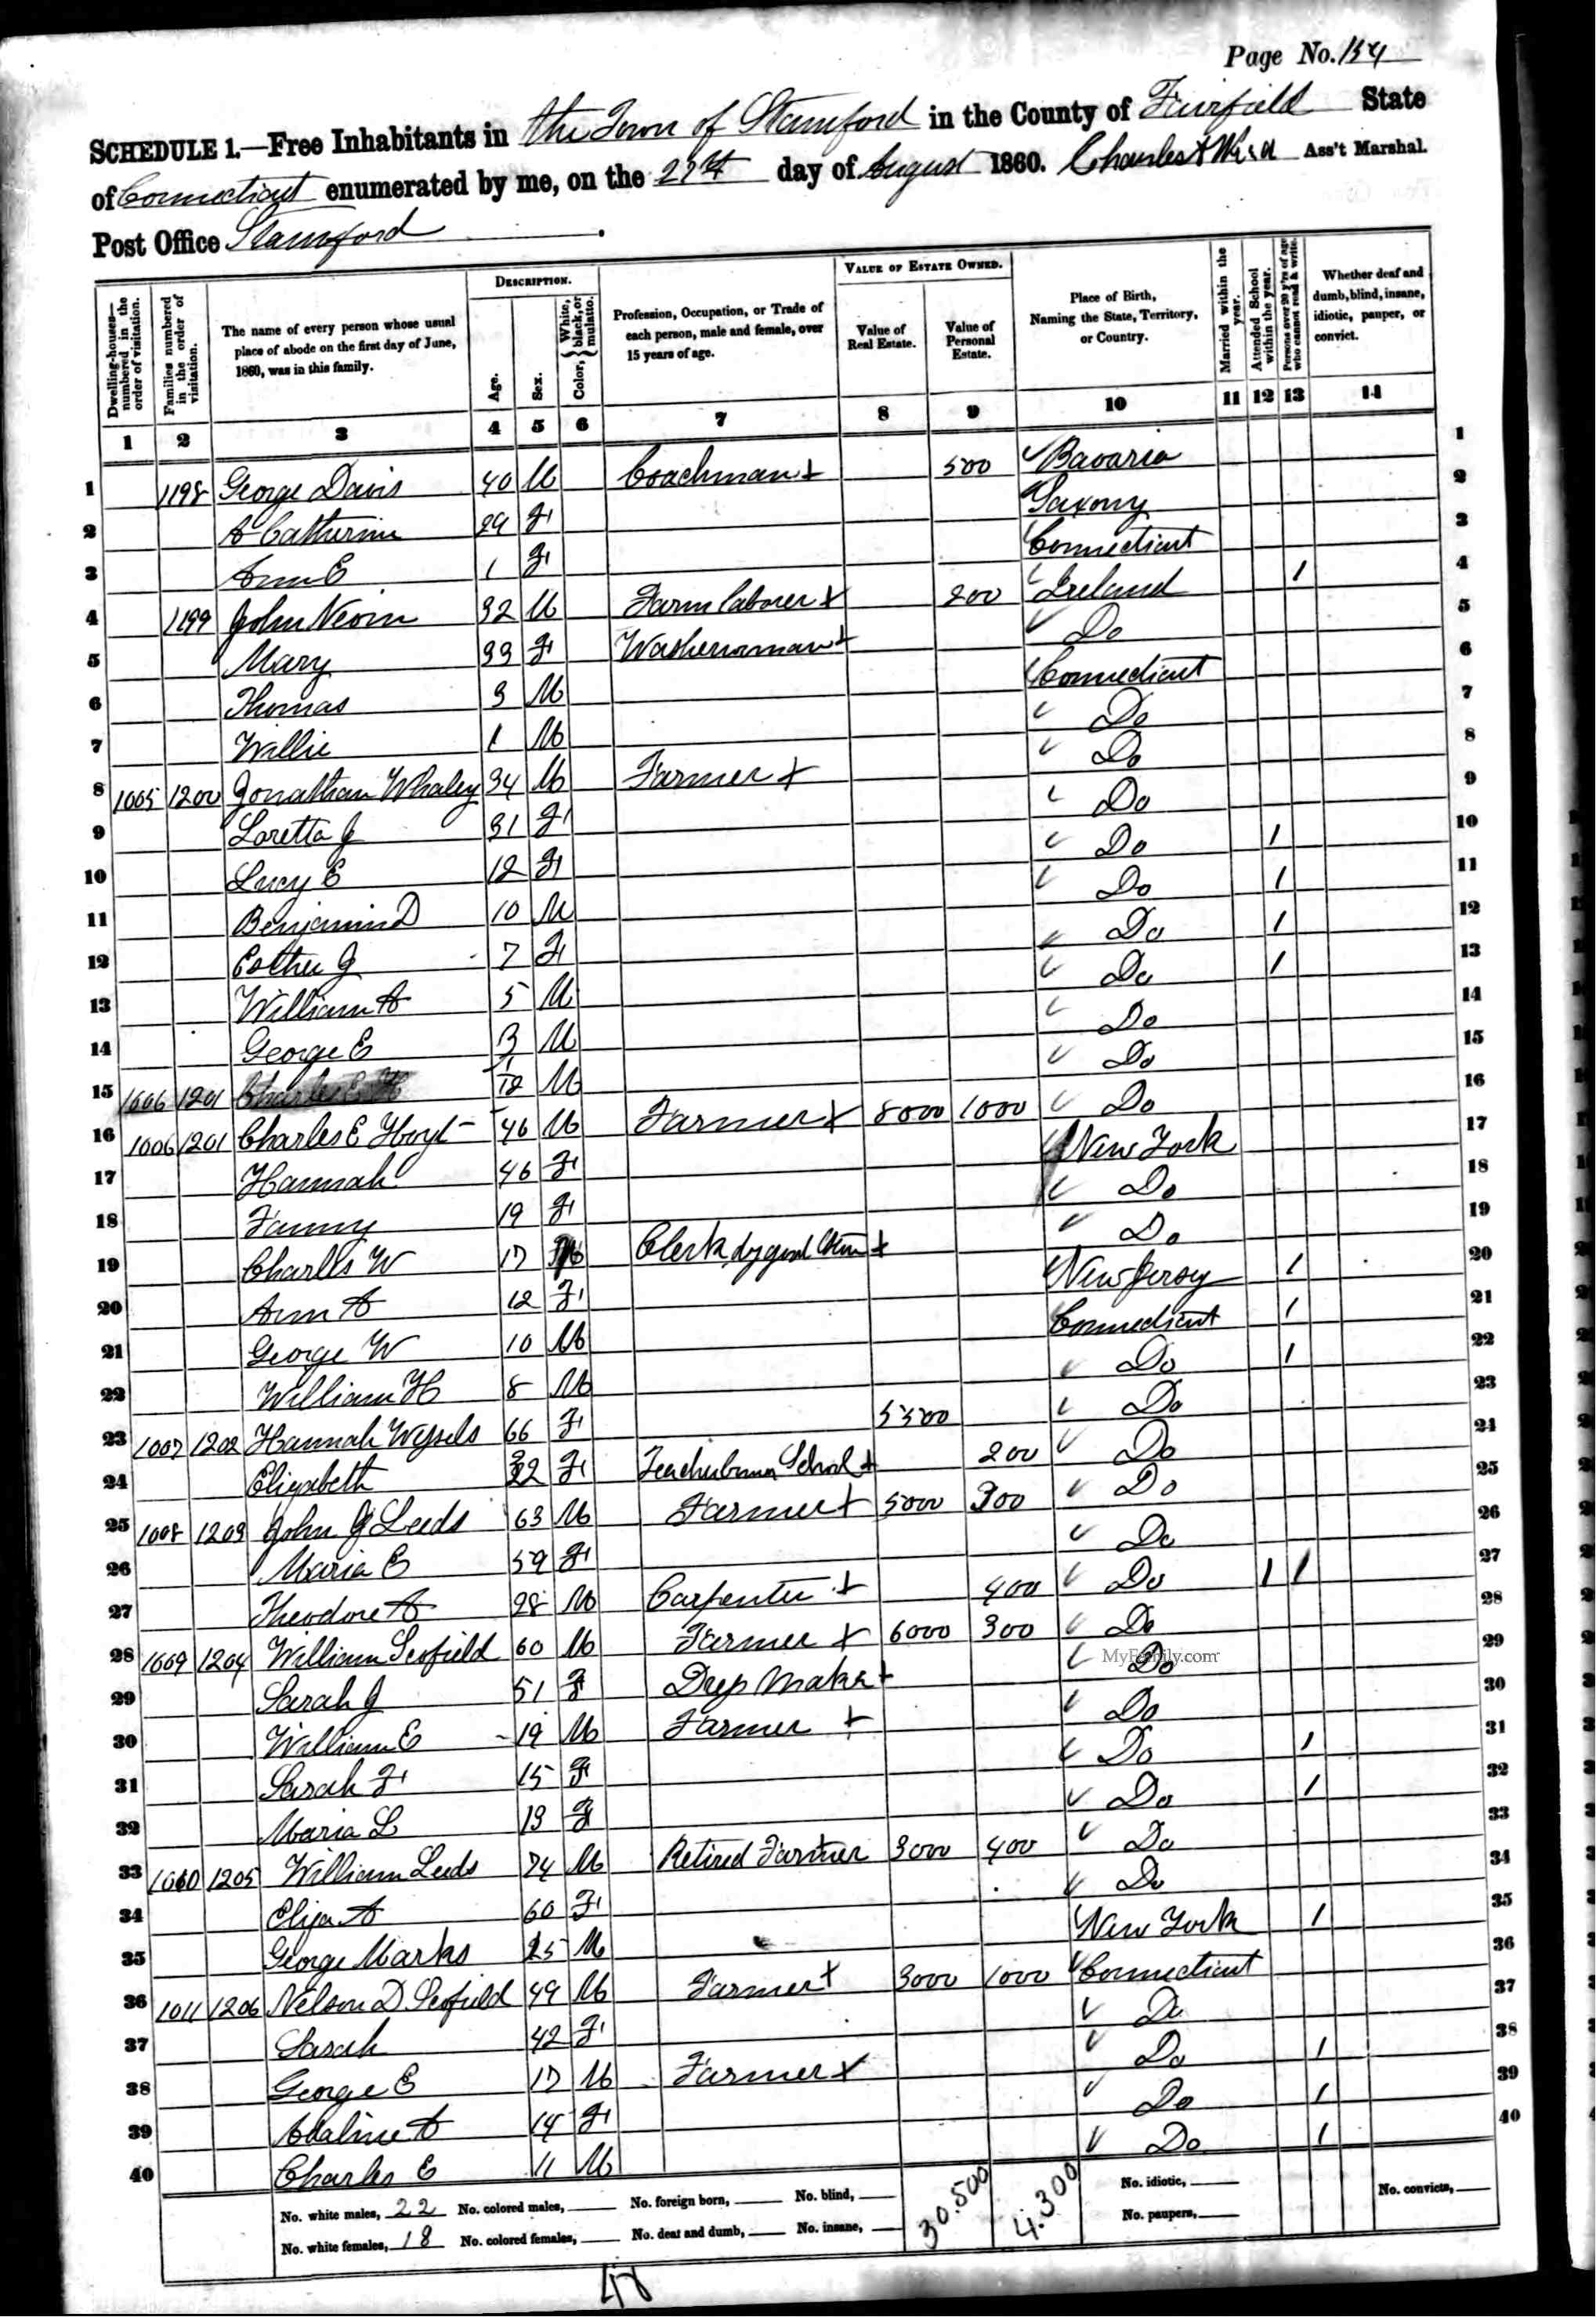 Page No. 154
SCHEDULE 1.—Free Inhabitants in the Town of Stamford in the County of Fairfield State
of Connecticut enumerated by me, on the 27th day of August 1860. Charles Ass't Marshal.
Post Office Stamford.
DESCRIPTION. VALUE OF ESTATE OWNED.
Dwelling-houses—numbered in the order of visitation. Families numbered in the order of visitation. The name of every person whose usual place of abode on the first day of June, 1860, was in this family. Age. Sex. Color, { White, black, or mulatto. Profession, Occupation, or Trade of each person, male and female, over 15 years of age. Value of Real Estate. Value of Personal Estate. Place of Birth, Naming the State, Territory, or Country. Married within the year. Attended School within the year. Persons over 20 y'rs of age who cannot read & write. Whether deaf and dumb, blind, insane, idiotic, pauper, or convict.
1 2 3 4 5 6 7 8 9 10 11 12 13 14
1 1198 George Davis 40 M Coachman + 500 ✓ Bavaria 1
2 A Catherine 29 F Saxony 2
3 Ann E 1 F Connecticut 3
4 1199 John Nevin 32 M Farm laborer + 200 ✓ Ireland 1 4
5 Mary 33 F Washerwoman + ✓ Do 5
6 Thomas 3 M Connecticut 6
7 Willie 1 M ✓ Do 7
8 1005 1200 Jonathan Whaley 34 M Farmer + ✓ Do 8
9 Loretta J 31 F ✓ Do 9
10 Lucy E 12 F ✓ Do 1 10
11 Benjamin D 10 M ✓ Do 1 11
12 Esther J 7 F ✓ Do 1 12
13 William A 5 M ✓ Do 1 13
14 George E 3 M ✓ Do 14
15 1006 1201 Charles E 1/12 M ✓ Do 15
16 1006 1201 Charles E Hoyt 46 M Farmer + 8000 1000 ✓ Do 16
17 Hannah 46 F New York 17
18 Fanny 19 F ✓ Do 18
19 Charles W 17 M Clerk dry good Store + ✓ Do 19
20 Ann A 12 F New Jersey 1 20
21 George W 10 M Connecticut 1 21
22 William H 8 M ✓ Do 1 22
23 1007 1202 Hannah Wessels 66 F 5500 ✓ Do 23
24 Elizabeth 32 F School + 200 ✓ Do 24
25 1008 1203 John J Leeds 63 M Farmer + 5000 300 ✓ Do 25
26 Maria E 59 F ✓ Do 26
27 Theodore A 28 M Carpenter + 400 ✓ Do 1 1 27
28 1009 1204 William Scofield 60 M Farmer + 6000 300 ✓ Do 28
29 Sarah J 51 F Dress Maker + ✓ Do 29
MyFamily.com
30 William E 19 M Farmer + ✓ Do 30
31 Sarah F 15 F ✓ Do 1 31
32 Maria L 13 F ✓ Do 1 32
33 1010 1205 William Leeds 74 M Retired Farmer 3000 400 ✓ Do 33
34 Eliza A 60 F ✓ Do 34
35 George Marks 25 M New York 1 35
36 1011 1206 Nelson D Scofield 49 M Farmer + 3000 1000 ✓ Connecticut 36
37 Sarah 42 F ✓ Do 37
38 George E 17 M Farmer + ✓ Do 1 38
39 Adaline A 14 F ✓ Do 1 39
40 Charles E 11 M ✓ Do 1 40
No. white males, 22 No. colored males, No. foreign born, No. blind, 30.500 4.300 No. idiotic, No. convicts,
No. white females, 18 No. colored females, No. deaf and dumb, No. insane, No. paupers,